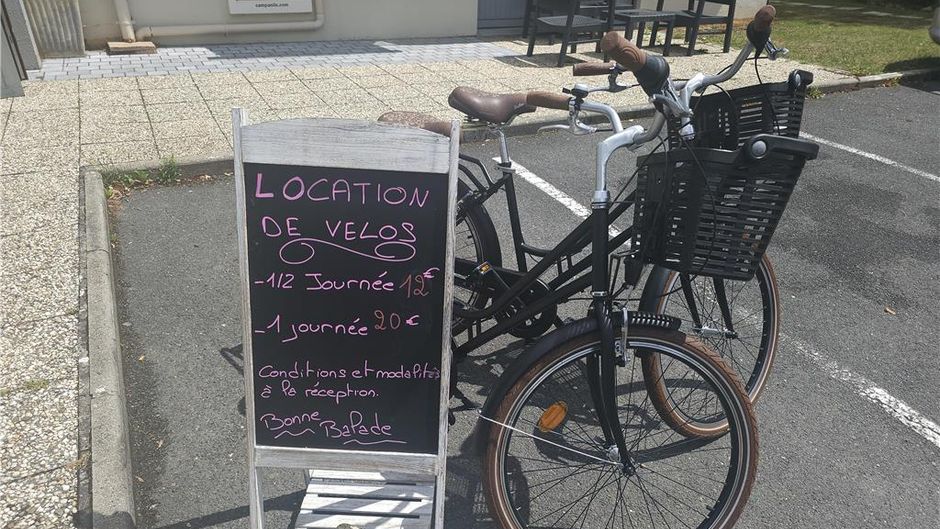 campanile.com
LOCATION
DE VELOS
-1/2 Journée 12€
-1 journée 20€
Conditions et modalités
à la réception.
Bonne
Balade